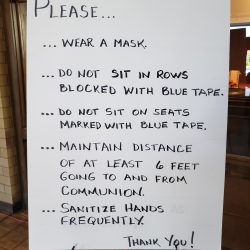 PLEASE...
... WEAR A MASK.
... DO NOT SIT IN ROWS
BLOCKED WITH BLUE TAPE.
... DO NOT SIT ON SEATS
MARKED WITH BLUE TAPE.
... MAINTAIN DISTANCE
OF AT LEAST 6 FEET
GOING TO AND FROM
COMMUNION.
... SANITIZE HANDS
FREQUENTLY.
THANK YOU!